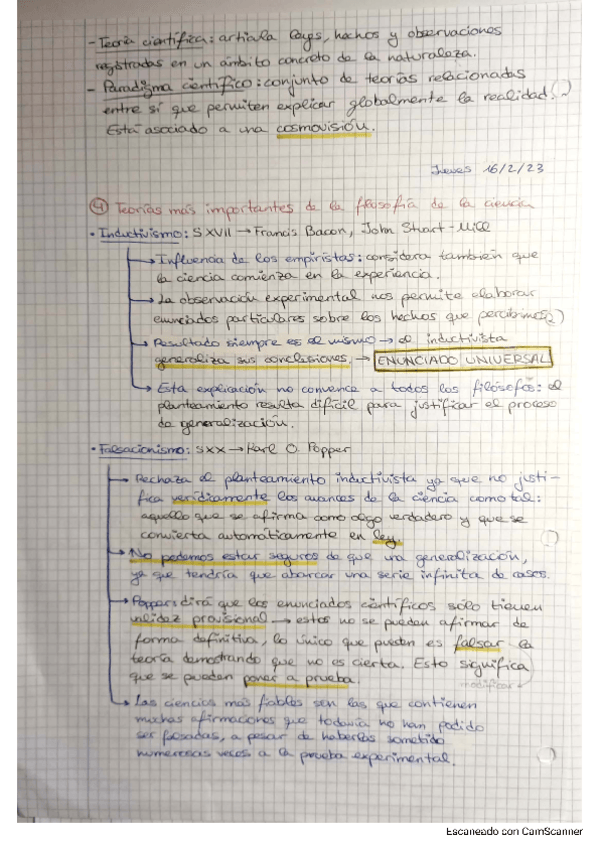 - Teoría científica: articula leyes, hechos y observaciones
registradas en un ámbito concreto de la naturaleza.
- Paradigma científico: conjunto de teorías relacionadas
entre sí que permiten explicar globalmente la realidad.
Está asociado a una cosmovisión.
Jueves 16/2/23
④ Teorías más importantes de la filosofía de la ciencia
• Inductivismo: S XVII → Francis Bacon, John Stuart-Mill
→ Influencia de los empiristas: considera también que
la ciencia comienza en la experiencia.
→ La observación experimental nos permite elaborar
enunciados particulares sobre los hechos que percibimos
→ Resultado siempre es el mismo → el inductivista
generaliza sus conclesiones. → ENUNCIADO UNIVERSAL
→ Esta explicación no convence a todos los filósofos: el
planteamiento resulta difícil para justificar el proceso
de generalización.
• Falsacionismo: SXX → Karl O. Popper
→ Rechaza el planteamiento inductivista ya que no justi-
fica verídicamente los avances de la ciencia como tal:
aquello que se afirma como algo verdadero y que se
convierta automáticamente en ley.
→ No podemos estar seguros de que una generalización,
ya que tendría que abarcar una serie infinita de casos.
→ Poppers dirá que los enunciados científicos sólo tienen
validez provisional → estos no se pueden afirmar de
forma definitiva, lo único que pueden es falsar la
teoría demostrando que no es cierta. Esto significa
que se pueden poner a prueba.
→ Las ciencias más fiables son las que contienen
muchas afirmaciones que todavía no han podido
ser falsadas, a pesar de haberlas sometido
numerosas veces a la prueba experimental.
Escaneado con CamScanner